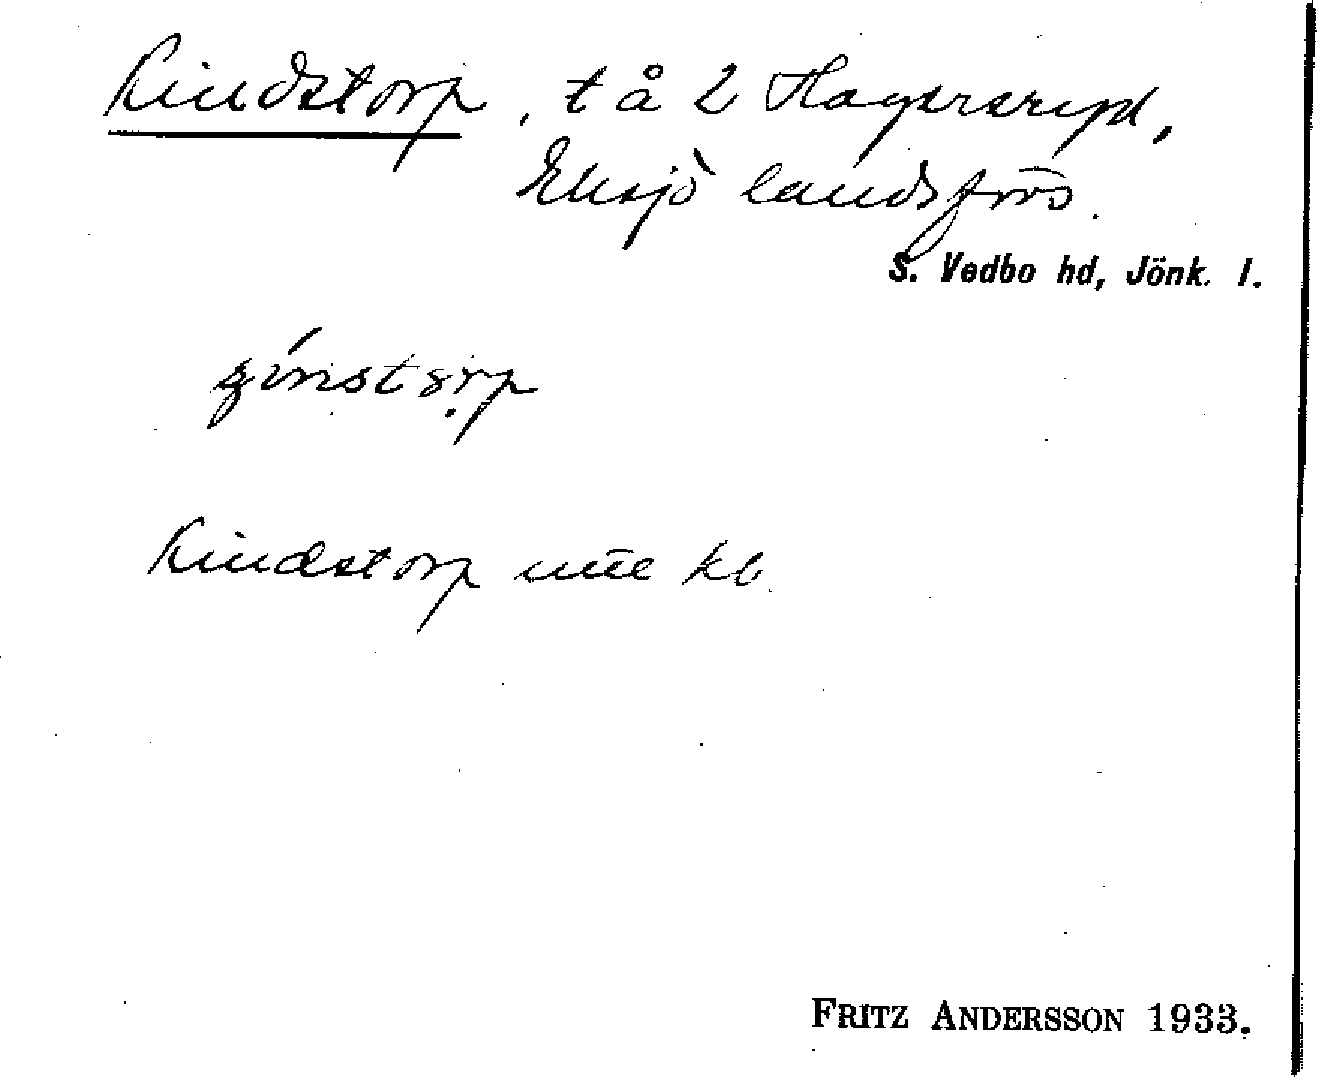 Kindstorp, t å 2 Hagersryd,
Eksjö landsförs.
S. Vedbo hd, Jönk. l.
Kindstorp kb.
FRITZ ANDERSSON 1933.